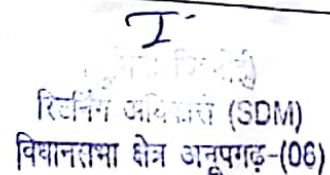 रिटर्निंग अधिकारी (SDM)
विधानसभा क्षेत्र अनूपगढ़-(06)